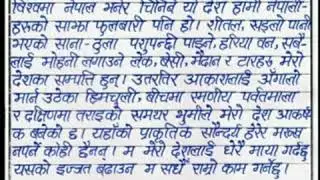 विश्वमा नेपाल भनेर चिनिने यो देश हामी नेपाली-
हरुको साझा फुलबारी पनि हो। शीतल, सङ्लो पानी
भएको साना-ठुला पाइने, हरिया वन, सबै-
लाई मोहनी लगाउने लेक, बेंसी, मैदान र टारहरु मेरो
देशका सम्पत्ति हुन्। उत्तरतिर आकाशलाई अँगालो
मार्न उठेका हिमचुली, बीचमा रमणीय पर्वतमाला
र दक्षिणमा तराइको समथर भूमीले मेरो देश आकर्षक
बनेको छ। यहाँको प्राकृतिक सौन्दर्य हेरेर मख्ख
नपर्ने कोही हैनन्। म मेरो देशलाई धेरै माया गर्दछु
यसको इज्जत बढाउन म सधैँ राम्रो काम गर्नेछु।